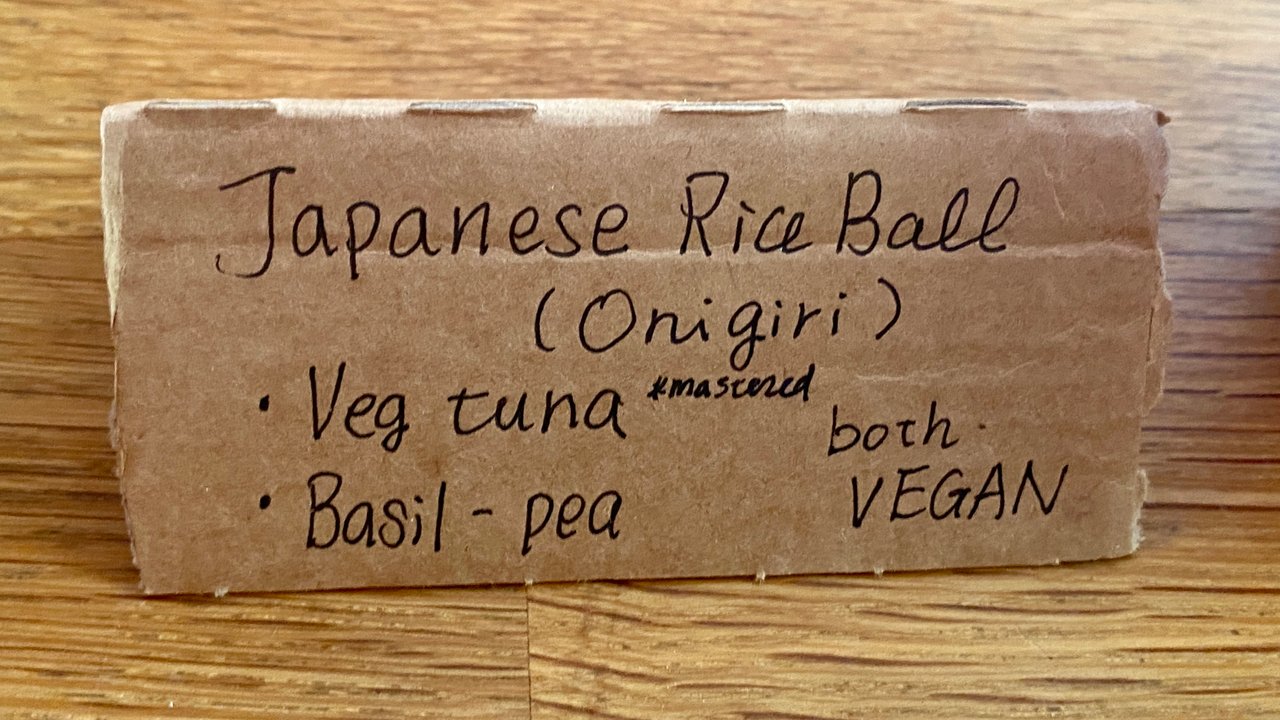 Japanese Rice Ball
(Onigiri)
• Veg tuna *mastered
• Basil - pea
both
VEGAN